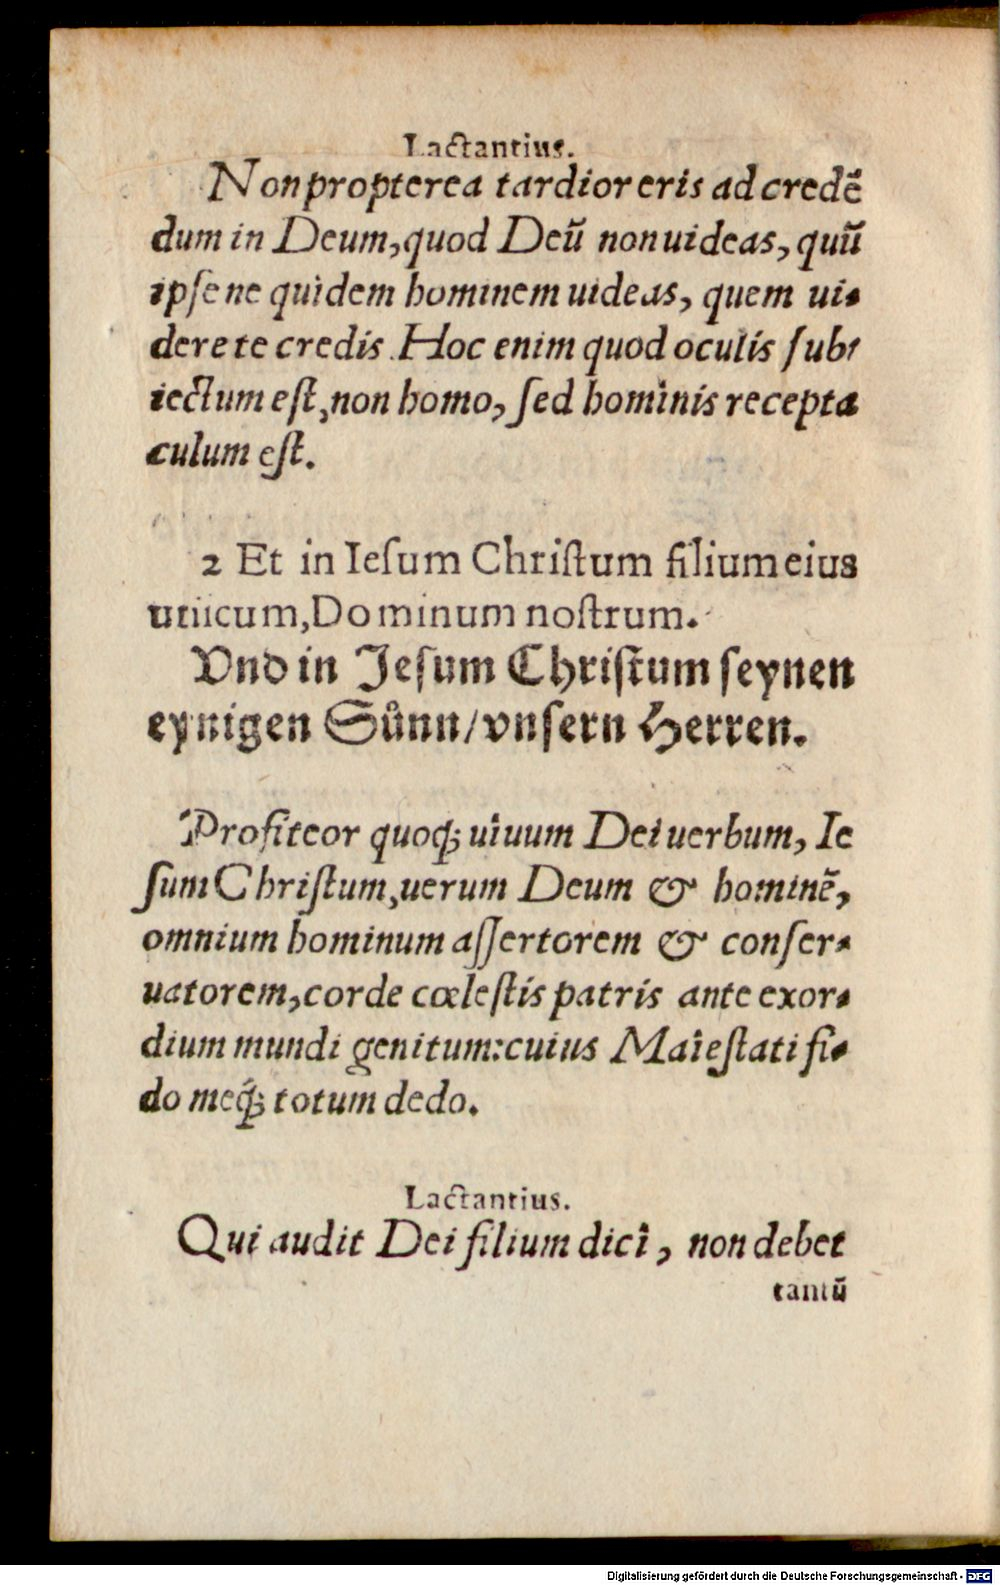 Lactantius.
Non propterea tardior eris ad credē
dum in Deum, quod Deū non uideas, quū
ipse ne quidem hominem uideas, quem ui-
dere te credis. Hoc enim quod oculis sub-
iectum est, non homo, sed hominis recepta
culum est.
2 Et in Iesum Christum filium eius
unicum, Dominum nostrum.
Vnd in Jesum Christum seynen
eynigen Sůnn/vnsern Herren.
Profiteor quoq; uiuum Dei uerbum, Ie
sum Christum, uerum Deum & hominē,
omnium hominum assertorem & conser-
uatorem, corde cœlestis patris ante exor-
dium mundi genitum: cuius Maiestati fi-
do meq́; totum dedo.
Lactantius.
Qui audit Dei filium dici, non debet
tantū
Digitalisierung gefördert durch die Deutsche Forschungsgemeinschaft - DFG